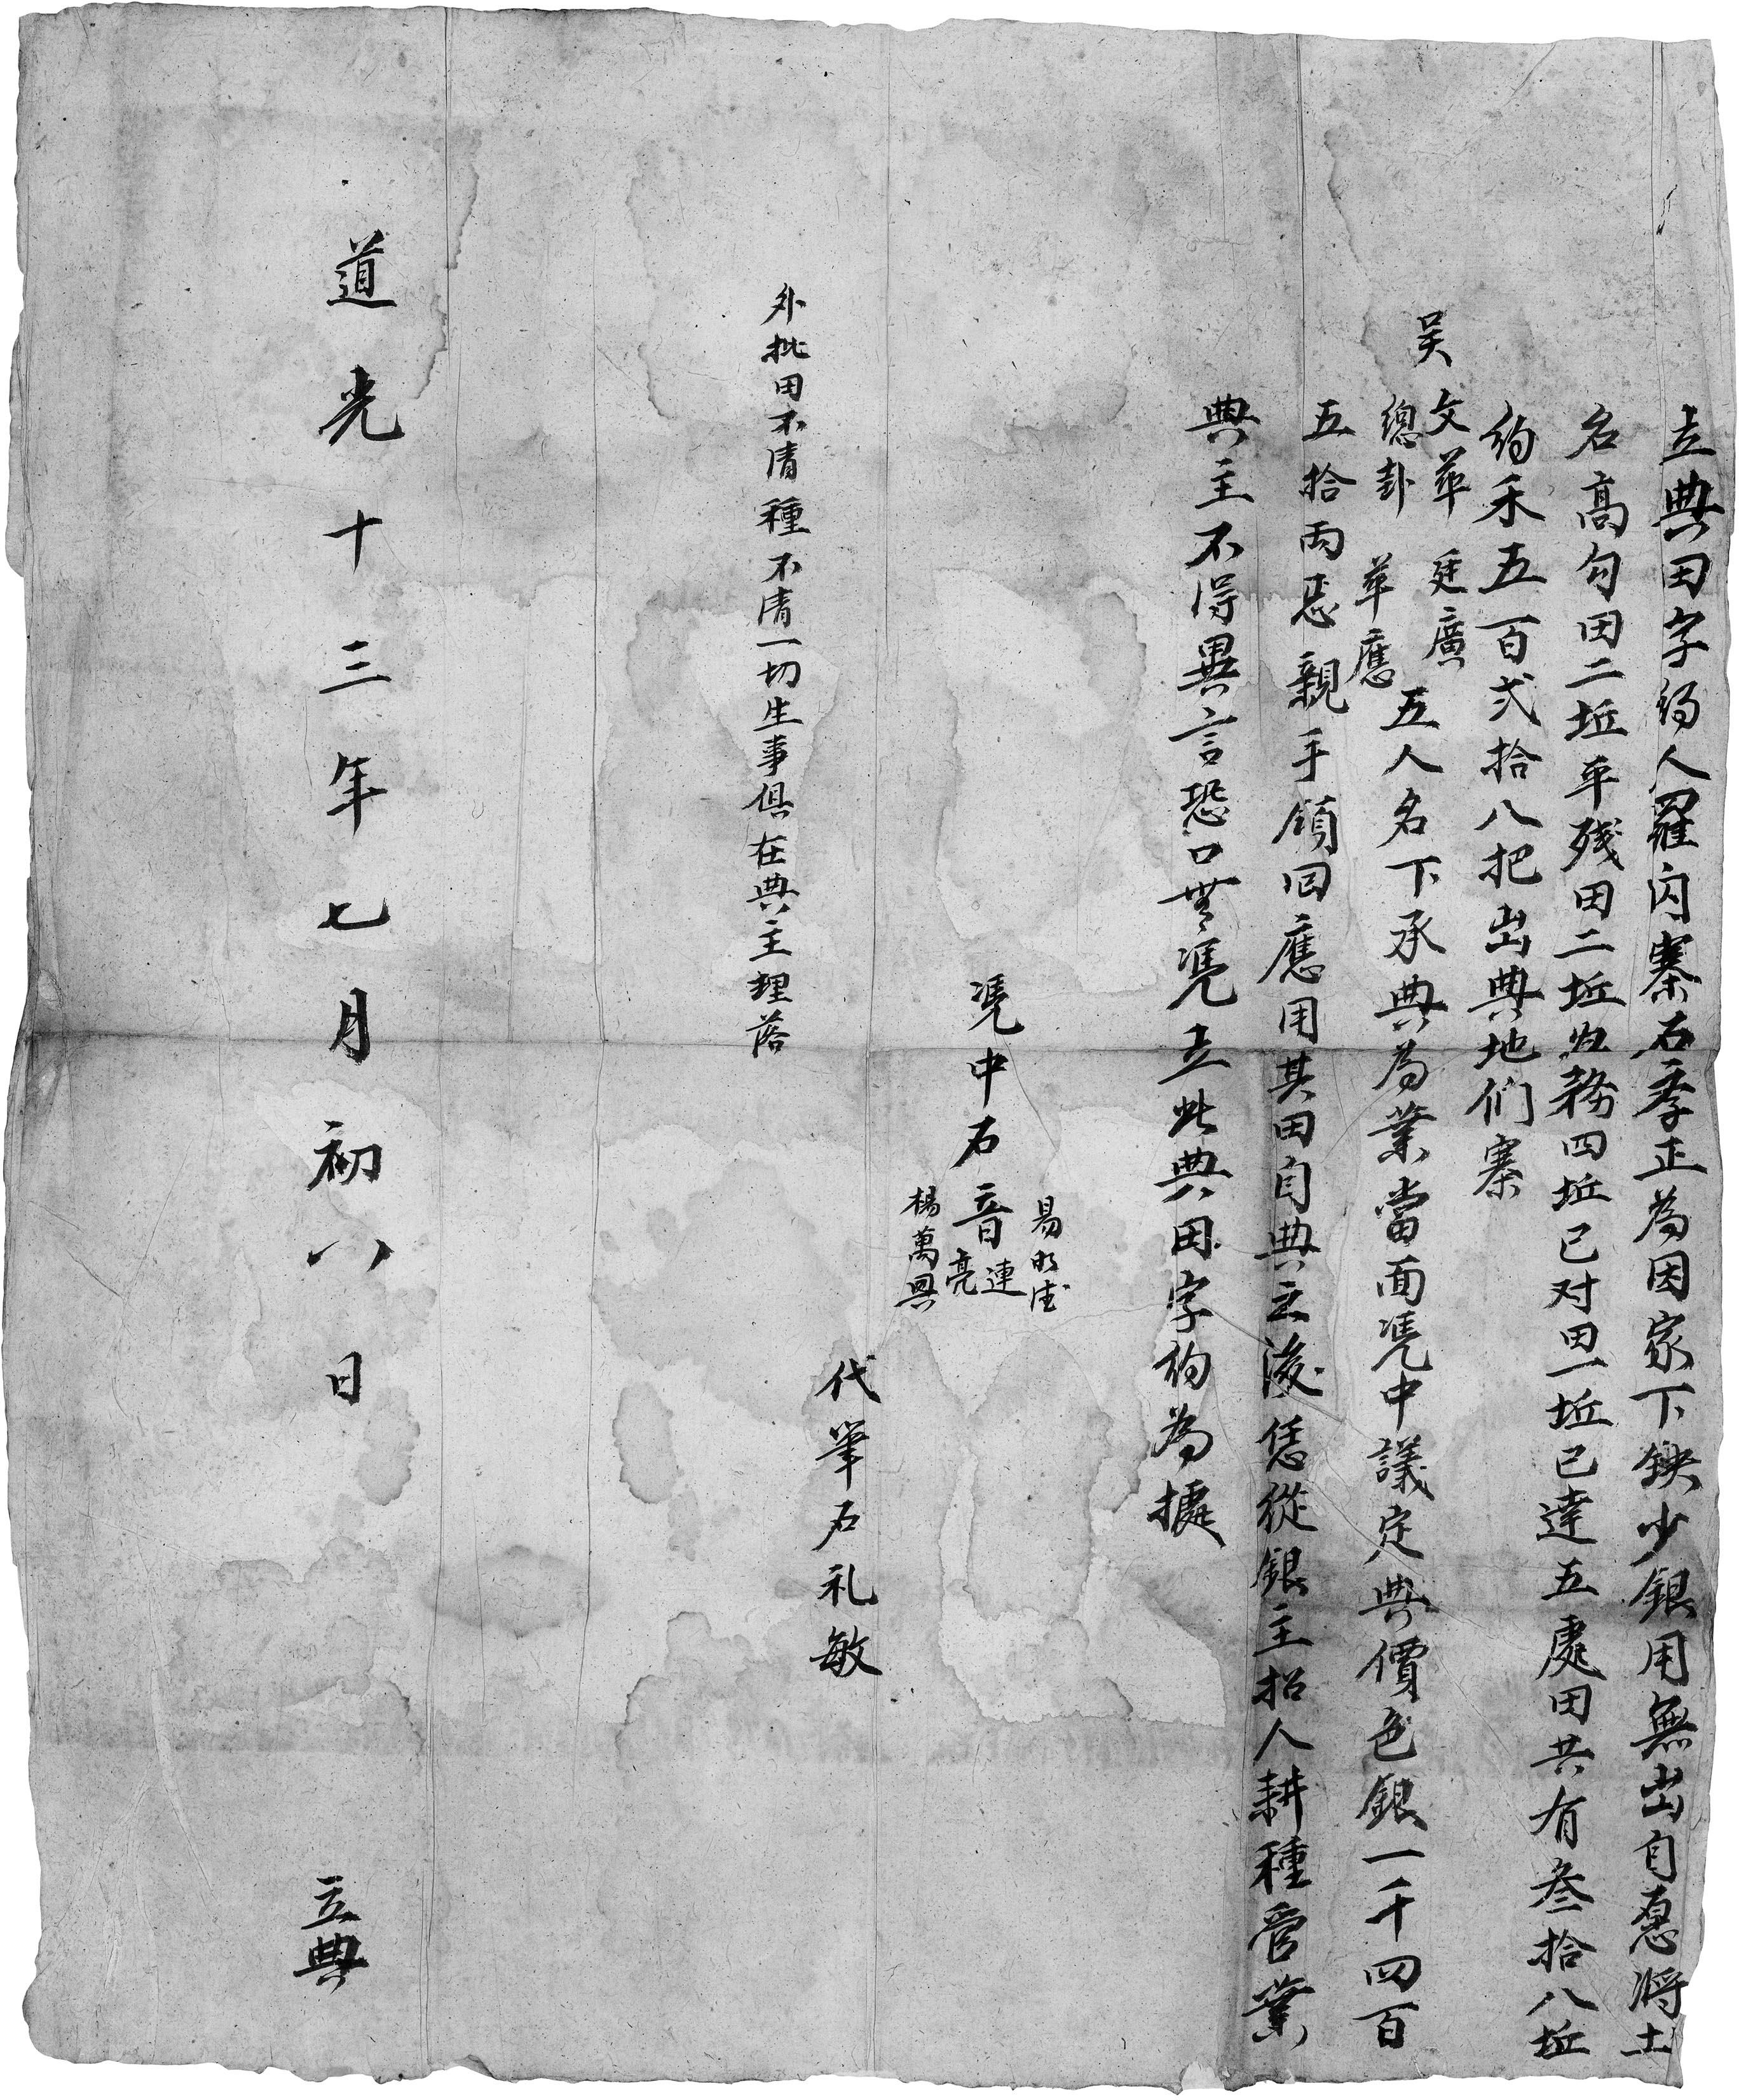 立典田字約人羅闪寨石孝正為因家下缺少銀用無出自愿將土
名高勻田二坵平殘田二坵為務四坵已对田一坵已達五處田共有叁拾八坵
約禾五百弍拾八把出典地们寨
吴
文華 廷廣
總卦 華應
五人名下承典為業當面凴中議定典價色銀一千四百
五拾両㤙親手領回應用其田自典之後恁從銀主招人耕種管業
典主不得異言恐口無凴立此典田字約為㨿
易明德
凴中石音連
亮
楊萬興
代筆石礼敏
外批田不清種不清一切生事俱在典主理落
道光十三年七月初八日 立典